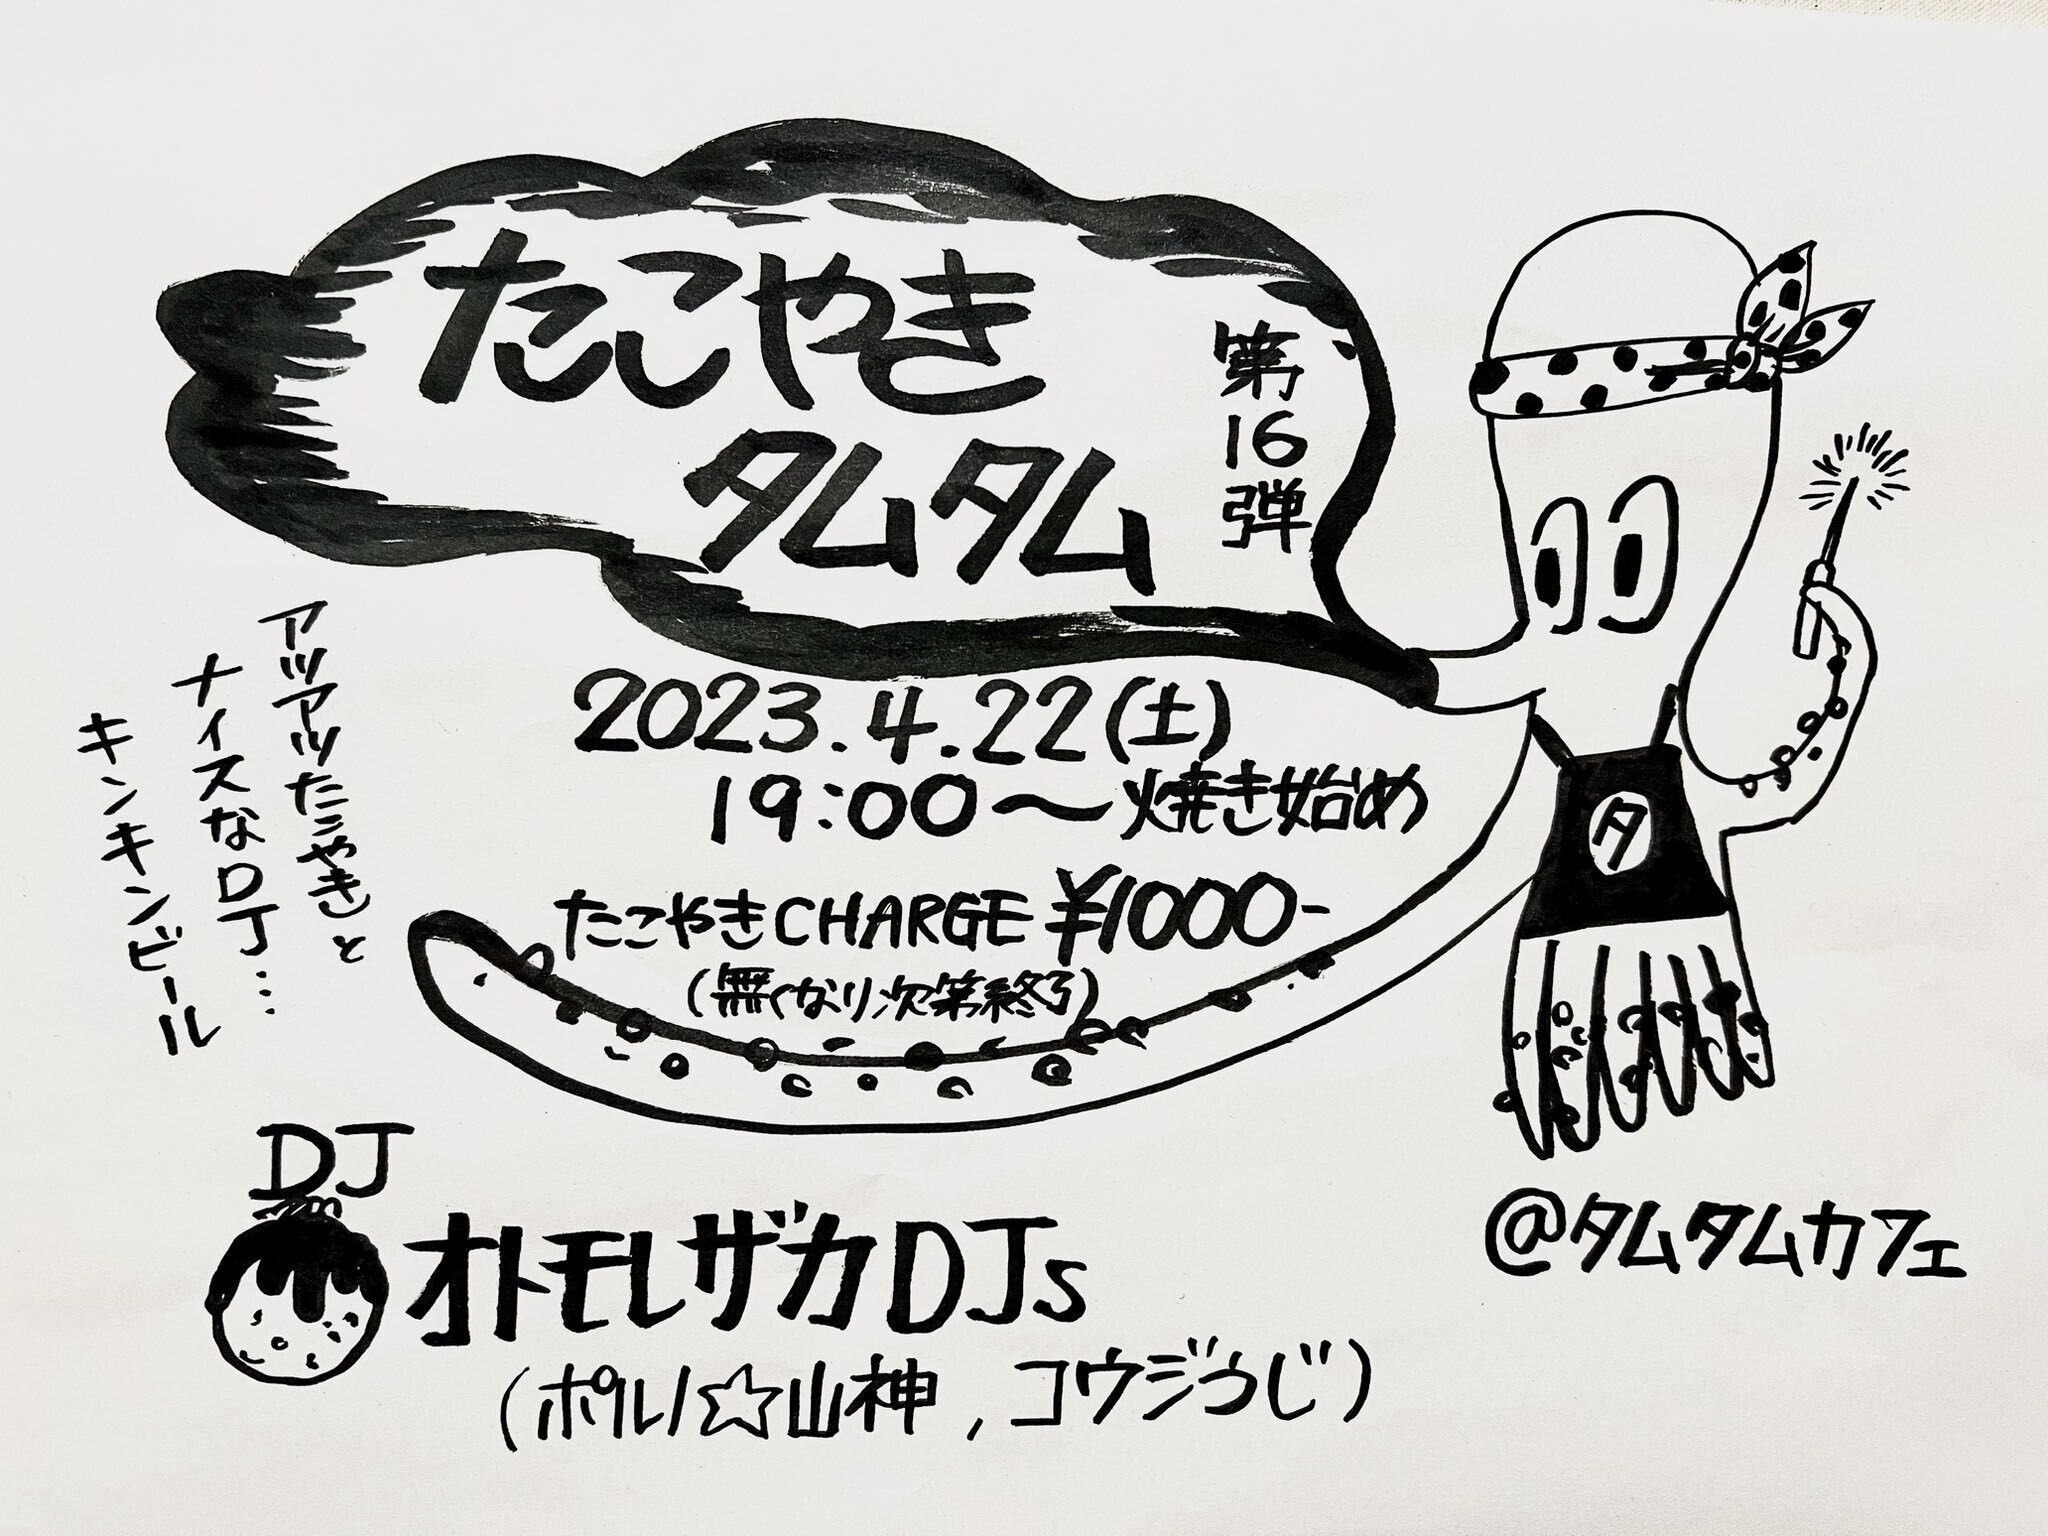 たこやき
タムタム
第16弾
2023.4.22(土)
19:00〜焼き始め
たこやきCHARGE ¥1000-
(無くなり次第終了)
アツアツたこやきと
ナイスなDJ…
キンキンビール
タ
DJ
オトモレザカDJs
(ポリノ☆山神,コウジうじ)
@タムタムカフェ